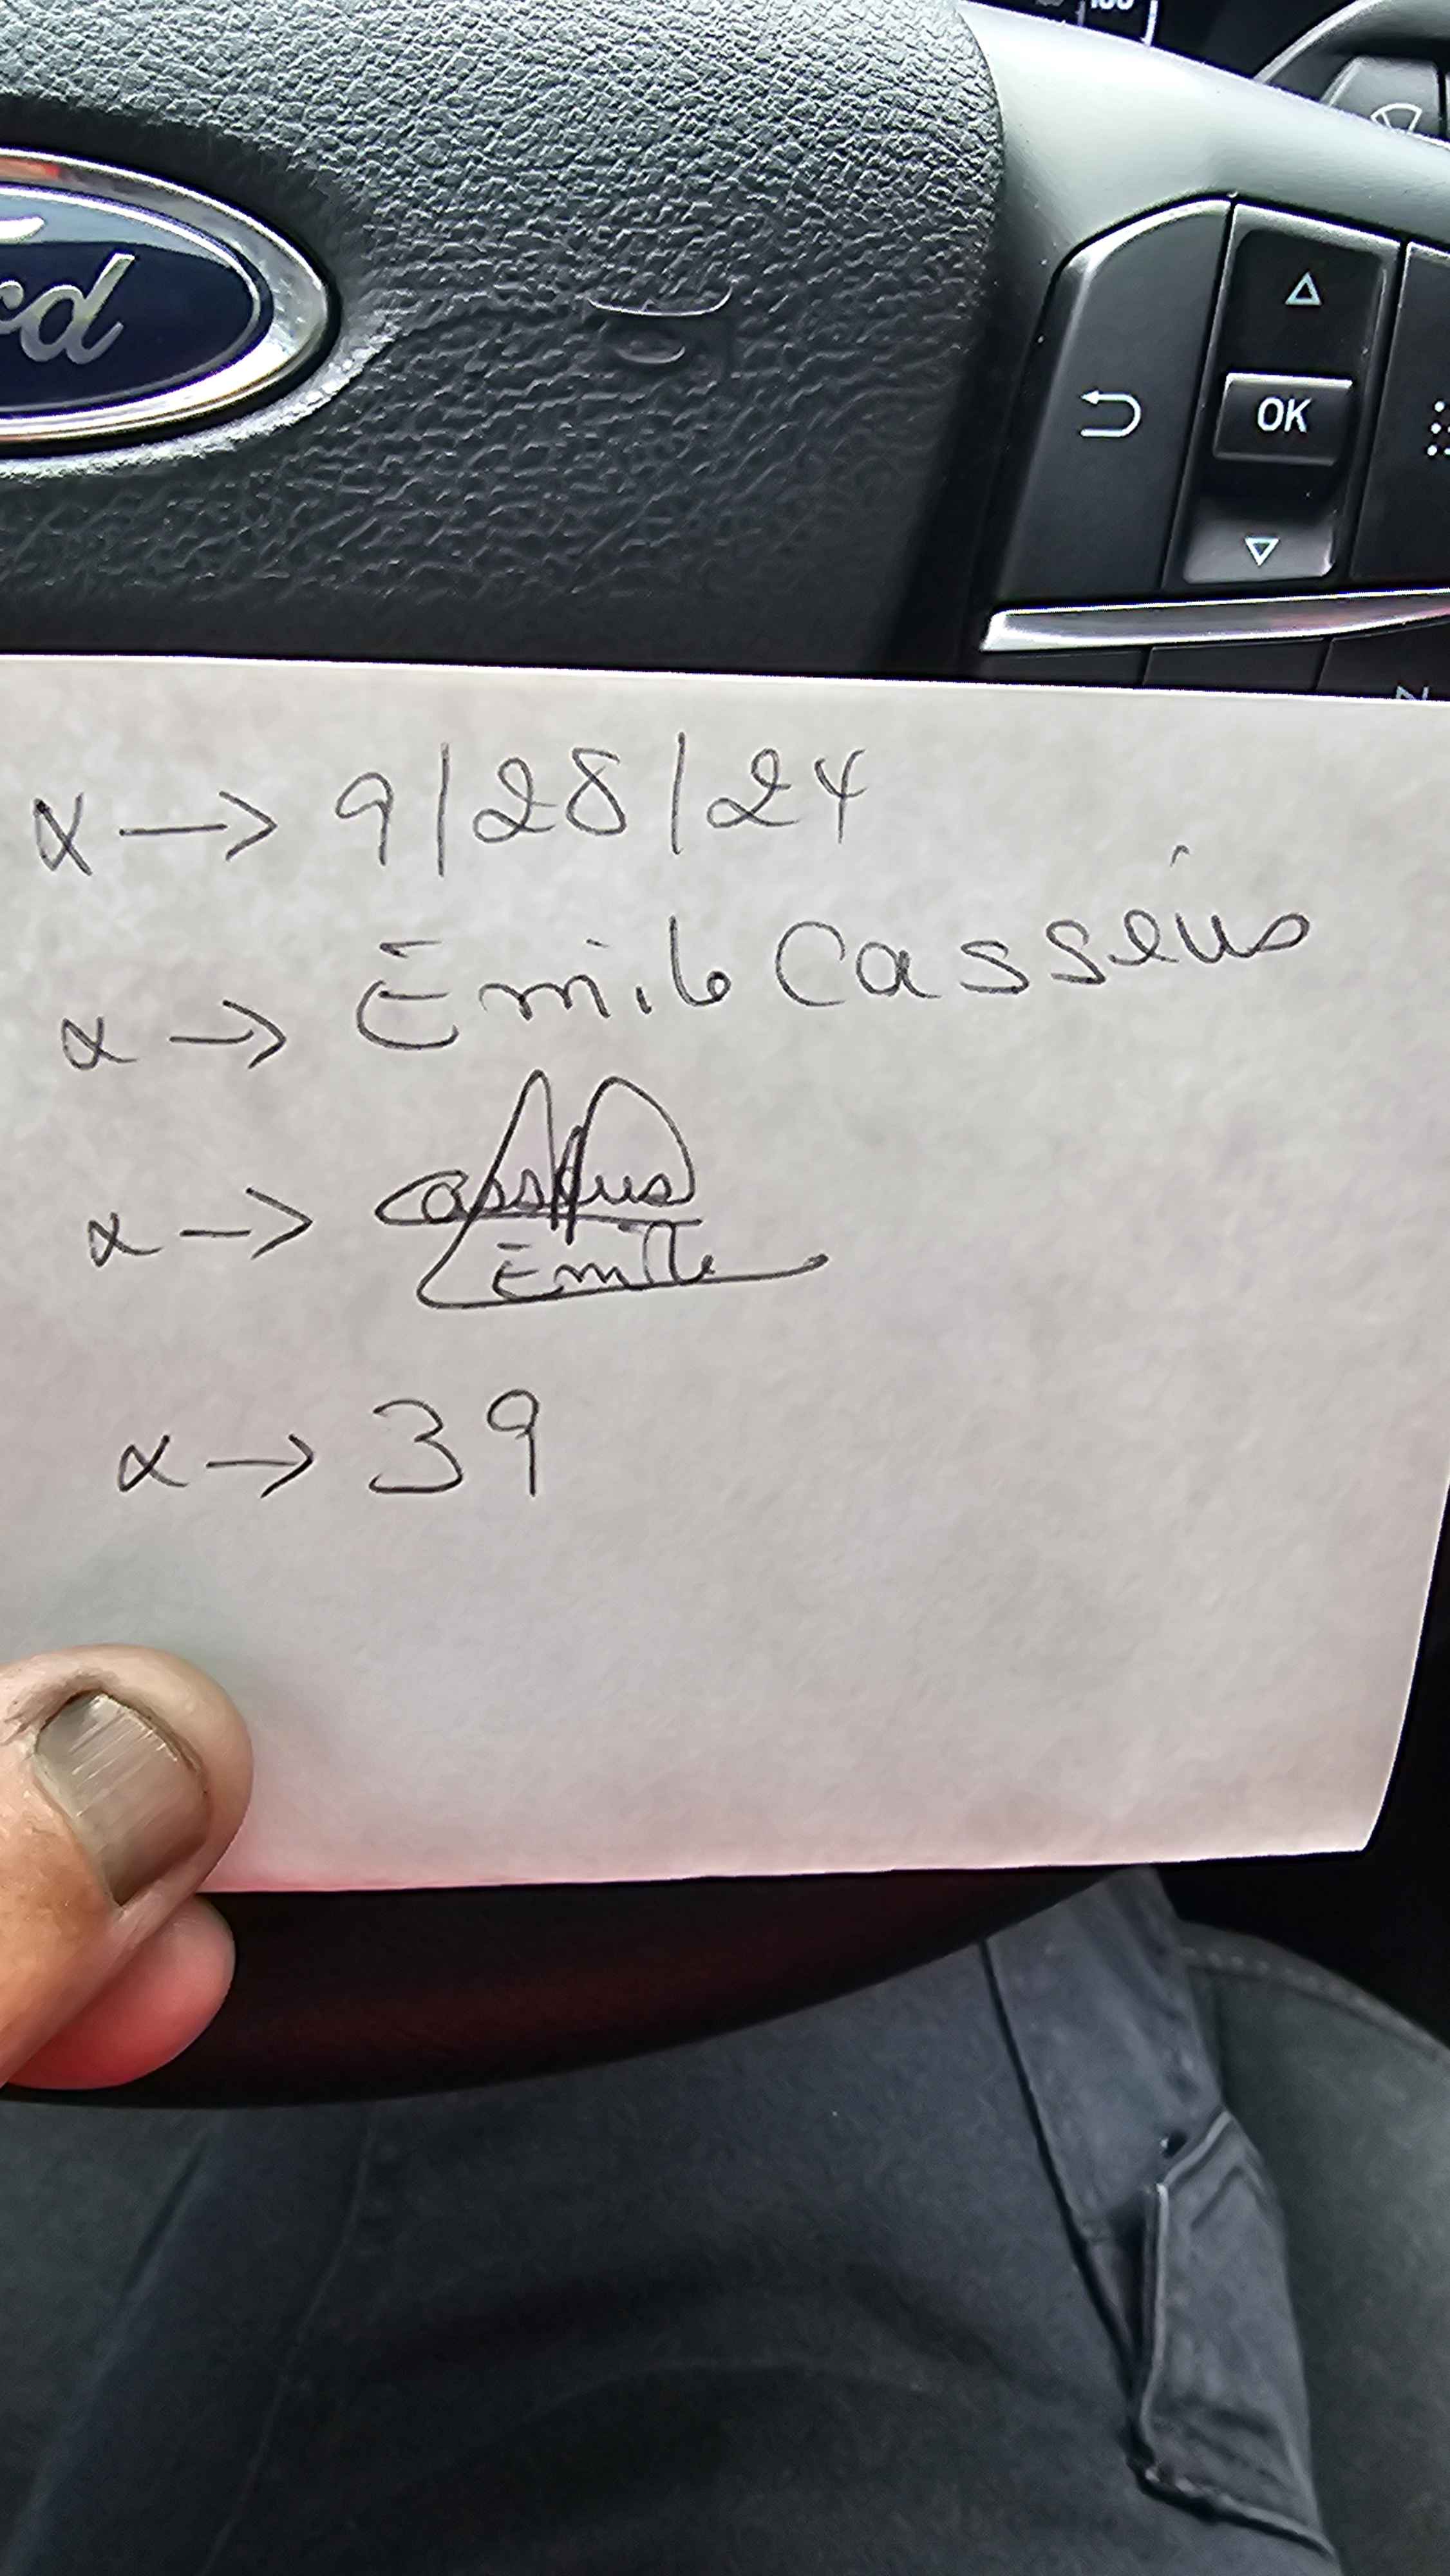 rd
OK
α → 9/28/24
α → Emile Casséus
α → Casséus
Emile
α → 39